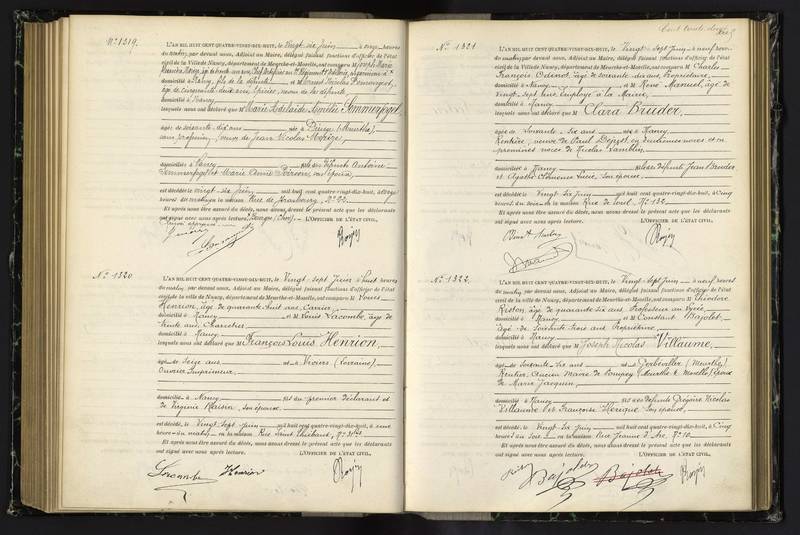 N° 1319.
L'AN MIL HUIT CENT QUATRE-VINGT-DIX-HUIT, le Vingt-six Juin à onze heures
du matin, par devant nous, Adjoint au Maire, délégué faisant fonctions d'officier de l'état
civil de la Ville de Nancy, département de Meurthe-et-Moselle, ont comparu M Joseph Marie
domicilié à Nancy, fils de la défunte et M Ernest Nicolas
âgé de Cinquante deux ans, Epicier, neveu de la défunte
domicilié à Nancy
lesquels nous ont déclaré que M Marie Adelaïde Amélie Sommerfogel
âgée de soixante-dix ans née à Dieuze (Meurthe)
sans profession, veuve de Jean Nicolas
domiciliée à Nancy fille des défunts Antoine
Sommerfogel et Marie Anne son épouse
est décédée le vingt-six Juin mil huit cent quatre-vingt-dix-huit, à
heures du matin en sa maison Rue de Strasbourg, N° 22
Et après nous être assuré du décès, nous avons dressé le présent acte que les déclarants
ont signé avec nous après lecture. L'OFFICIER DE L'ÉTAT CIVIL,
N° 1320.
L'AN MIL HUIT CENT QUATRE-VINGT-DIX-HUIT, le Vingt-sept Juin à huit heures
du matin, par devant nous, Adjoint au Maire, délégué faisant fonctions d'officier de l'état
civil de la ville de Nancy, département de Meurthe-et-Moselle, ont comparu M Louis
Henrion, âgé de quarante huit ans, Carrier,
domicilié à Nancy et M Louis Lacombe, âgé de
trente ans, Charretier
domicilié à Nancy
lesquels nous ont déclaré que M François Louis Henrion
âgé de Seize ans né à Viviers (Lorraine)
Ouvrier Imprimeur
domicilié à Nancy fils du premier déclarant et
de Virginie son épouse
est décédé le Vingt-Sept Juin mil huit cent quatre-vingt-dix-huit, à une
heure du matin, en sa maison Rue Saint Thiébaut,
Et après nous être assuré du décès, nous avons dressé le présent acte que les déclarants
ont signé avec nous après lecture. L'OFFICIER DE L'ÉTAT CIVIL,
Lacombe Henrion
N° 1321
L'AN MIL HUIT CENT QUATRE-VINGT-DIX-HUIT, le Vingt-Sept Juin à neuf heures
du matin, par devant nous, Adjoint au Maire, délégué faisant fonctions d'officier de l'état
civil de la Ville de Nancy, département de Meurthe-et-Moselle, ont comparu M Charles
François Odinot, âgé de soixante dix ans, Propriétaire,
domicilié à Nancy et M René Manuel, âgé de
Vingt-sept ans, Employé à la Mairie,
domicilié à Nancy
lesquels nous ont déclaré que M Clara Bruder
âgée de Soixante-Six ans née à Nancy
Rentière, veuve de Paul en deuxièmes noces et en
premières noces de Nicolas Lamblin
domiciliée à Nancy fille des défunts Jean Bruder
et Agathe Clémence son épouse
est décédée le Vingt-Six Juin mil huit cent quatre-vingt-dix-huit, à Cinq
heures du soir en sa maison Rue de Toul, N° 132
Et après nous être assuré du décès, nous avons dressé le présent acte que les déclarants
ont signé avec nous après lecture. L'OFFICIER DE L'ÉTAT CIVIL,
N° 1322.
L'AN MIL HUIT CENT QUATRE-VINGT-DIX-HUIT, le Vingt-Sept Juin à neuf heures
du matin, par devant nous, Adjoint au Maire, délégué faisant fonctions d'officier de l'état
civil de la ville de Nancy, département de Meurthe-et-Moselle, ont comparu M Théodore
Riston, âgé de quarante six ans, Professeur au Lycée
domicilié à Nancy et M Constant Bajolet
âgé de Soixante trois ans Propriétaire
domicilié à Nancy
lesquels nous ont déclaré que M Joseph Nicolas Villaume
âgé de Soixante-Six ans né à Gerbéviller (Meurthe)
Rentier, Ancien Maire de Pompey (Meurthe & Moselle) Epoux
de Marie Jacquin
domicilié à Nancy fils des défunts Grégoire Nicolas
Villaume et Françoise son épouse
est décédé le Vingt-Six Juin mil huit cent quatre-vingt-dix-huit, à Cinq
heures du Soir en sa maison Rue Jeanne d'Arc, N° 10
Et après nous être assuré du décès, nous avons dressé le présent acte que les déclarants
ont signé avec nous après lecture. L'OFFICIER DE L'ÉTAT CIVIL,
Bajolet Bajolet